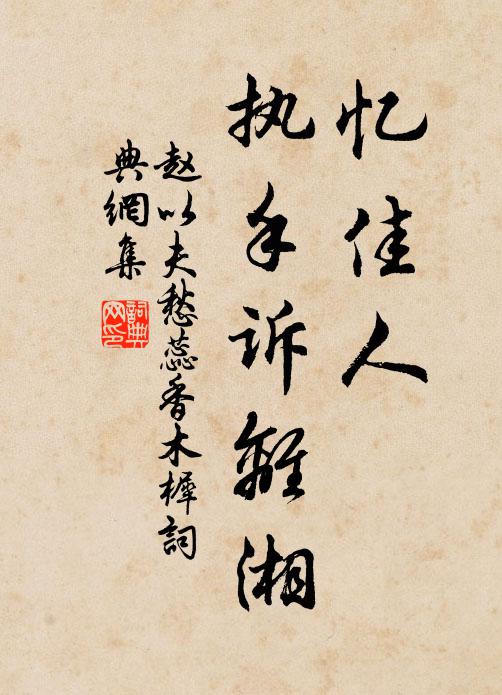 忆佳人
执手诉离湘
赵以夫愁蕊香木樨詞
典網集
詞典网印